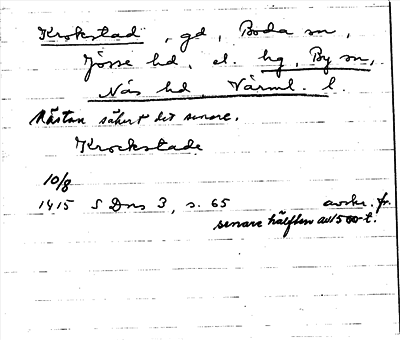 Krokstad, gd, Boda sn,
Jösse hd, el. hg, By sn,
Näs hd, Värml. l.
Nästan säkert det senare.
Krockstade
10/8
1415 S Dns 3, s. 65 avskr. fr.
senare hälften av 1500-t.